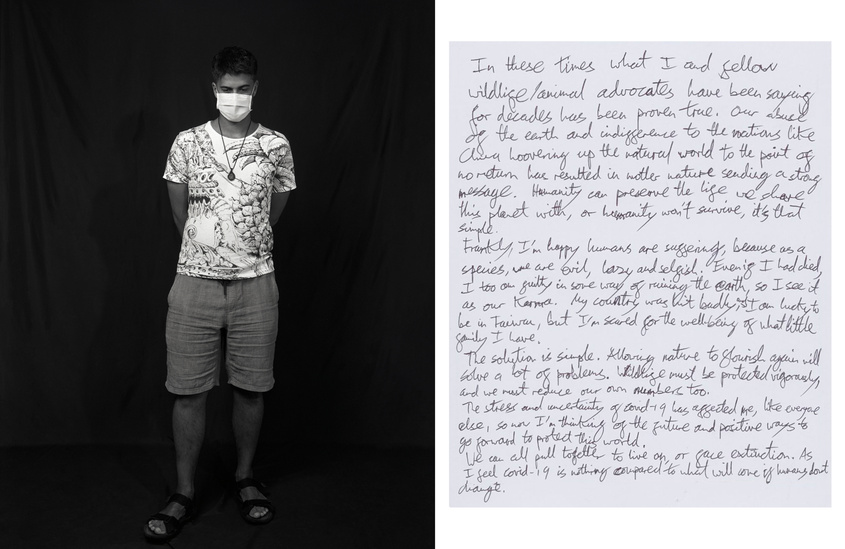 In these times what I and fellow
wildlife/animal advocates have been saying
for decades has been proven true. Our abuse
of the earth and indifference to the nations like
China hoovering up the natural world to the point of
no return has resulted in mother nature sending a strong
message. Humanity can preserve the life we share
this planet with, or humanity won't survive, it's that
simple.
Frankly, I'm happy humans are suffering, because as a
species, we are evil, lazy and selfish. Even if I had died,
I too am guilty in some way of ruining the earth, so I see it
as our Karma. My country was hit badly, so I am lucky to
be in Taiwan, but I'm scared for the wellbeing of what little
family I have.
The solution is simple. Allowing nature to flourish again will
solve a lot of problems. Wildlife must be protected vigorously,
and we must reduce our own numbers too.
The stress and uncertainty of covid-19 has affected me, like everyone
else, so now I'm thinking of the future and positive ways to
go forward to protect this world.
We can all pull together to live on, or face extinction. As
I feel covid-19 is nothing compared to what will come if humans dont
change.